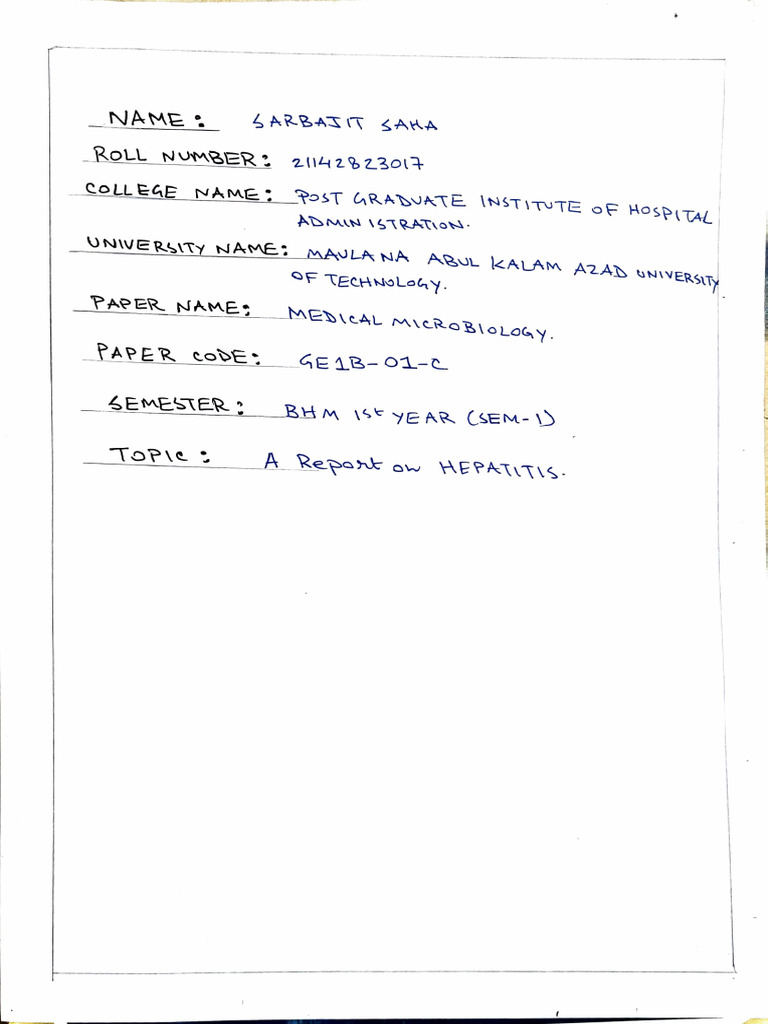 NAME: SARBAJIT SAHA
ROLL NUMBER: 21142823017
COLLEGE NAME: POST GRADUATE INSTITUTE OF HOSPITAL
ADMINISTRATION.
UNIVERSITY NAME: MAULANA ABUL KALAM AZAD UNIVERSITY
OF TECHNOLOGY.
PAPER NAME: MEDICAL MICROBIOLOGY.
PAPER CODE: GE1B-01-C
SEMESTER: BHM 1st YEAR (SEM-1)
TOPIC: A Report on HEPATITIS.